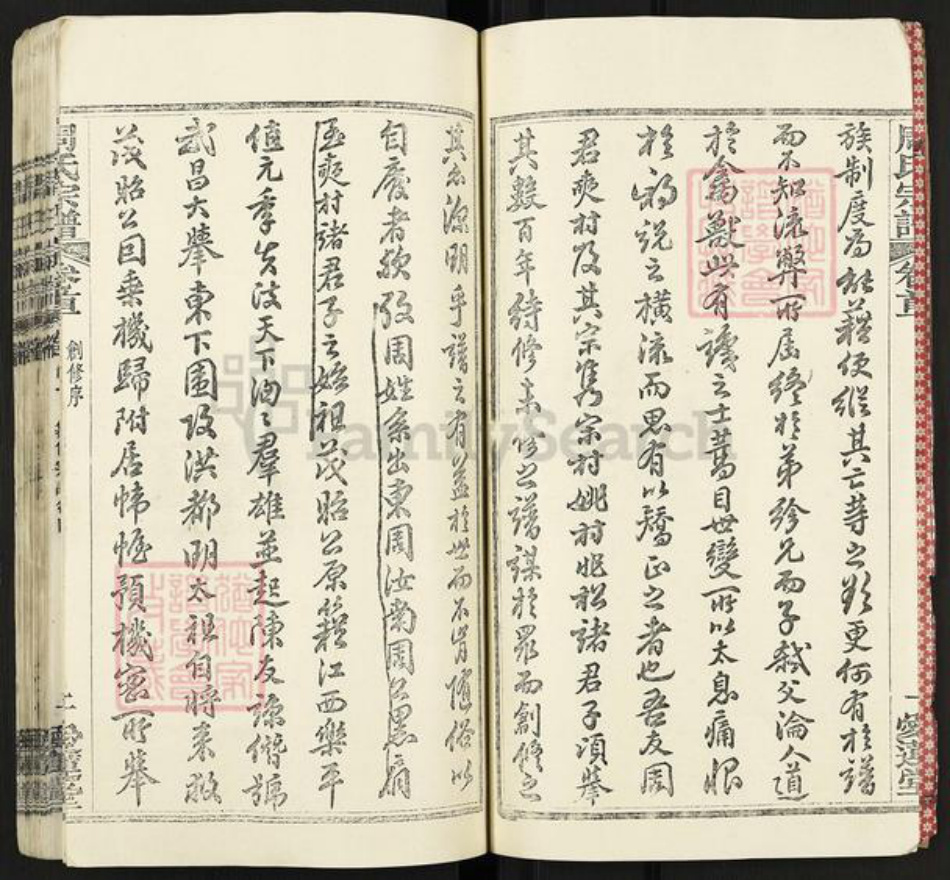 族制度為封藉便縱其亡等之欲更何有於譜
而不知流弊所屆終於弟紾兄而子弒父淪人道
於禽獸此有識之士蒿目世變所以太息痛恨
於禍說之橫流而思有以矯正之者也吾友周
君爽村及其宗雋宗村姚村兆松諸君子項舉
其數百年待修未修之譜謀於眾而創修之
其亦深明乎譜之有益於世而不肯隨俗以
自廢者歟攷周姓系出東周汝南周公黑肩
至爽村諸君子之始祖茂昭公原籍江西樂平
值元季失政天下洶洶群雄並起陳友諒僭號
武昌大舉東下圍攻洪都明太祖自將來救
茂昭公因乘機歸附居帷幄預機密所舉
周氏宗譜
卷首
創修序
一
愛蓮堂
周氏宗譜
卷首
二
愛蓮堂
FamilySearch